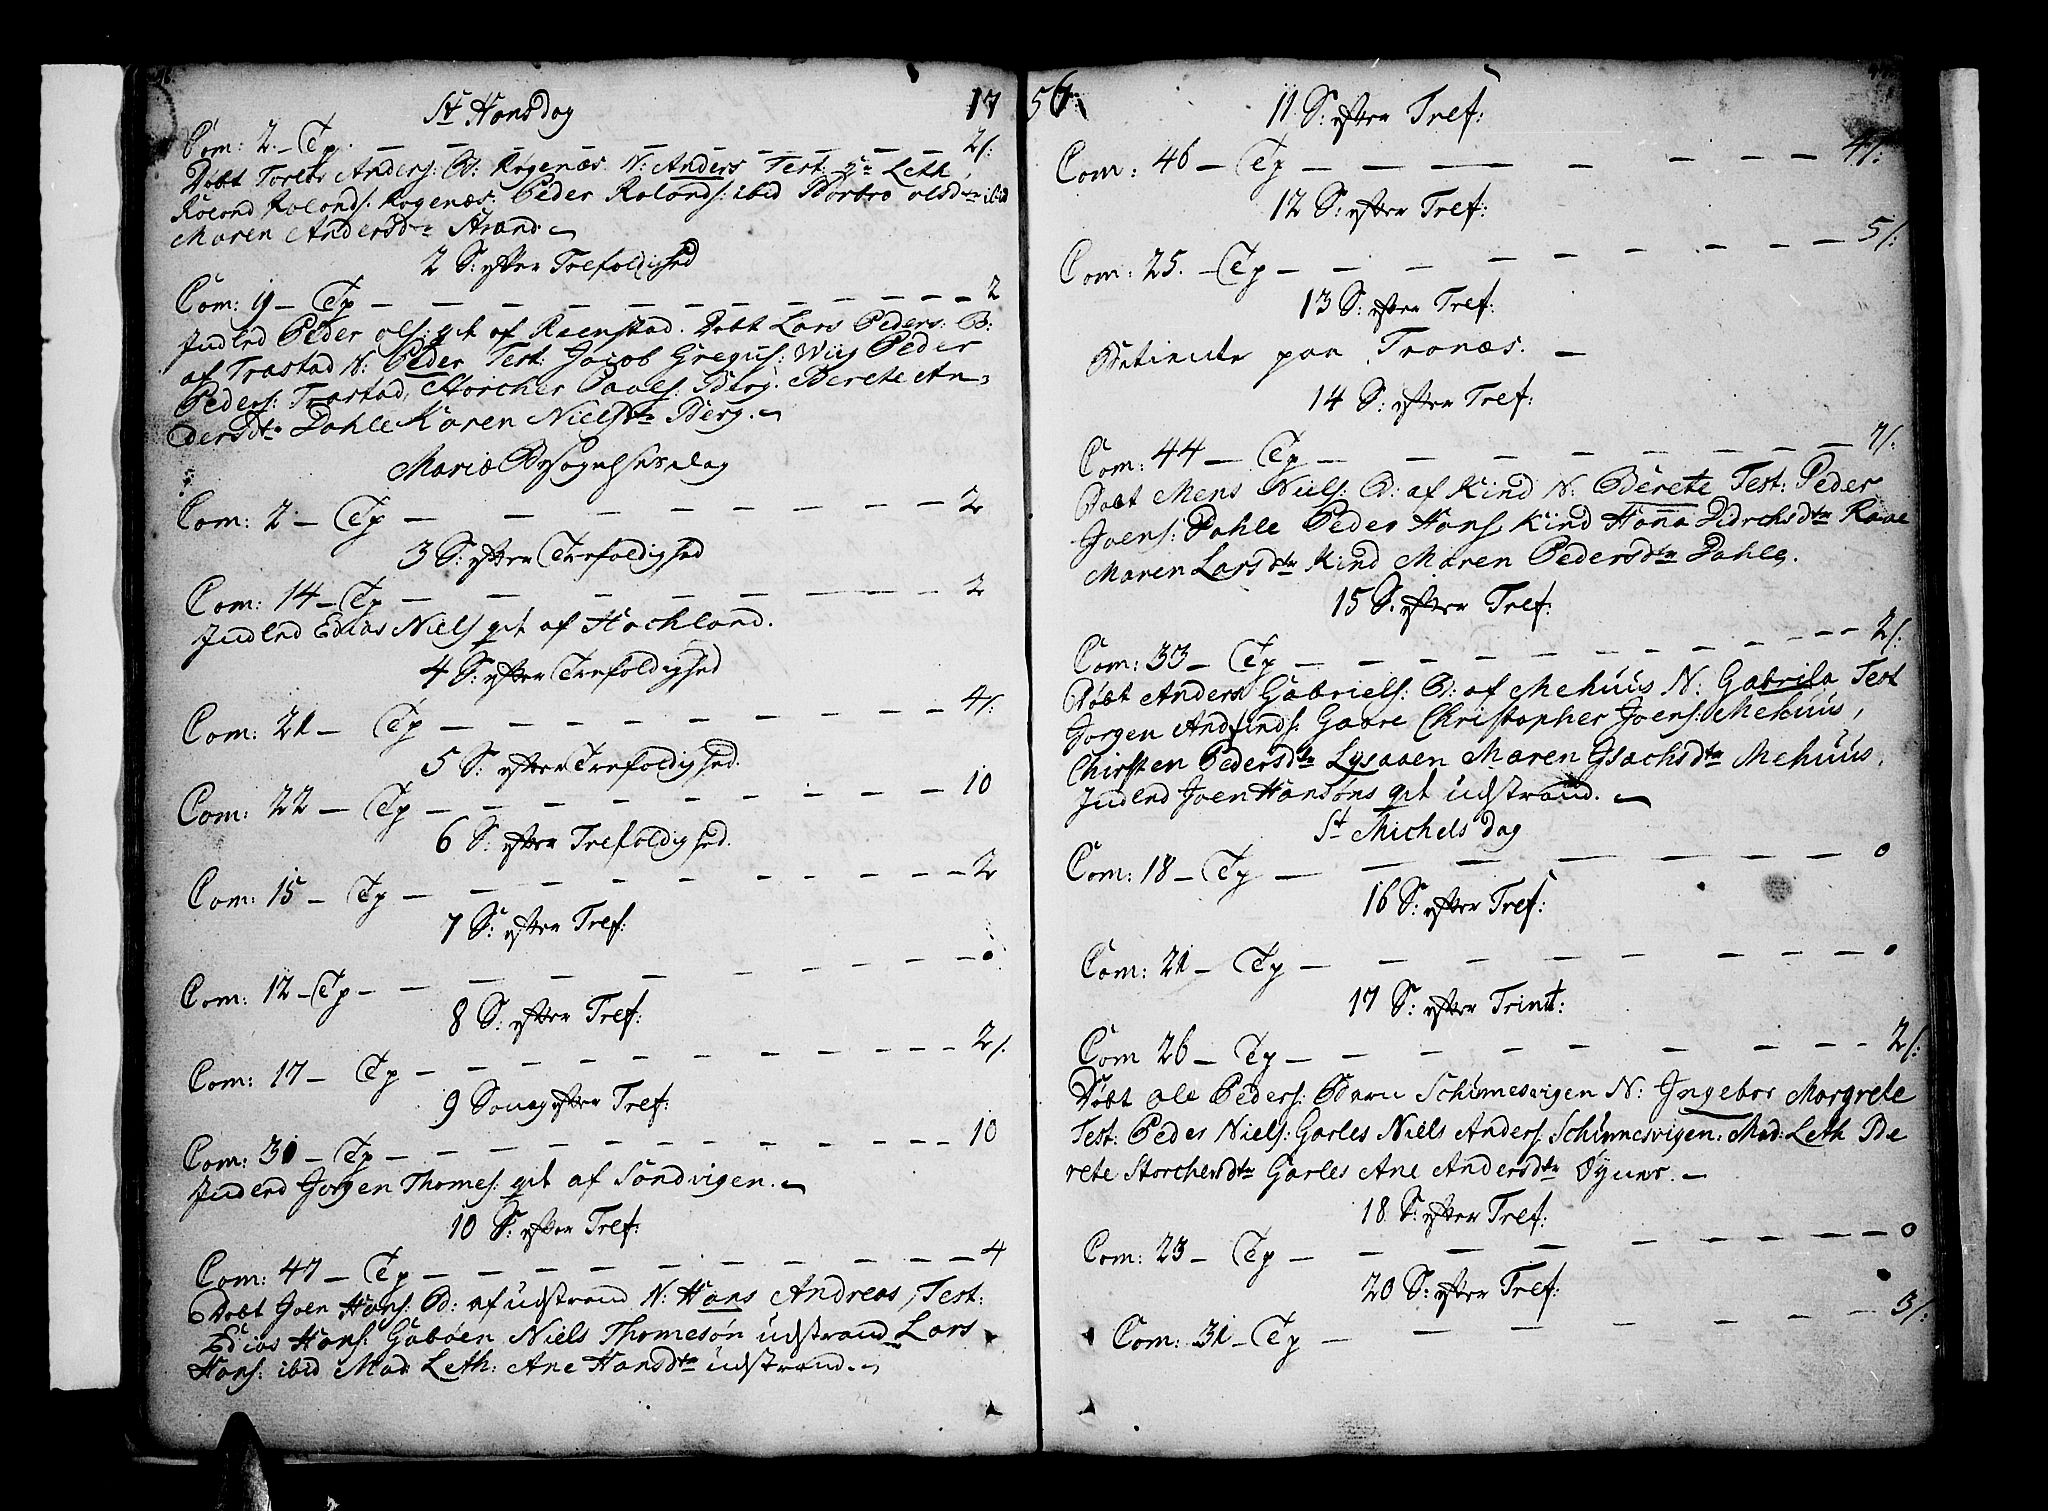 St Hansdag
17
Com: 2. – Tp. – 2/:
Døbt Anders: B: Røgenæs. N: Anders Test: Hr Leth,
Roland Rolands: Rogenæs. Peder Rolands: ibid Barbro olsdtr ibid
Maren Andersdtr Strand.
2 S: efter Trefoldighed
Com: 19 – Tp – 2
Jnlrd Peder ols: qvt af Reenstad. Døbt Lars Peders: B:
af Trastad N: Peder Test: Jacob Gregus: Wiig Peder
Peders: Trastad, Storcher Paals: Berg. Berete An-
dersdtr Dahle Karen Nielsdtr Berg.
Mariæ Besøgelsesdag
Com: 2 – Tp – 2
3 S: efter Trefoldighed
Com: 14 – Tp – 2
Jnlrd Edias Niels qvt af Hochland.
4 S: efter Trefoldighed
Com: 21 – Tp – 4/:
5 S: efter Trefoldighed.
Com: 22 – Tp – 10
6 S: efter Trefoldighed.
Com: 15 – Tp – 2
7 S: efter Tref:
Com: 12 – Tp – 0
8 S: efter Tref:
Com: 17 – Tp – 2/:
9 Sonag efter Tref:
Com: 31 – Tp – 10
Jnlrd Jørgen Thomes: qvt af Sandvigen.
10 S: efter Tref:
Com: 47 – Tp – 4
Døbt Joen Hans: B: af udstrand N: Hans Andreas, Test:
Edias Hans: Gabøen Niels Thomesøn udstrand Lars
Hans: ibid Mad: Leth: Ane Hansdtr udstrand.
56
11 S: efter Tref:
Com: 46 – Tp – 4/:
12 S: efter Tref:
Com: 25. – Tp – 5/:
13 S: efter Tref:
Betiente paa Tronæs.
14 S: efter Tref:
Com: 44 – Tp – 7/:
Døbt Mens Niels: B: af Kind N: Berete Test: Peder
Joens: Dahle Peder Hans Kind Hana Didrchsdtr Raae
Maren Larsdtr Kind Maren Pedersdtr Dahle.
15 S: efter Tref:
Com: 33 – Tp – 2/:
Døbt Anders Gabriels: B: af Mehuus N: Gabrila Test
Jorgen Andfinds: Gaare Christopher Joens: Mehuus,
Chirsten Pedersdtr Lysaaen Maren Jsachsdtr Mehuus,
Jnlrd Joen Hansøns qvt udstrand.
St Michels dag
Com: 18 – Tp – 0
16 S: efter Tref:
Com: 21 – Tp – 0
17 S: efter Trint:
Com 26 – Tp – 2/:
Døbt ole Peders: Barn Schinnesvigen N: Jngebor Margrete
Test: Peder Niels: Garles Niels Anders: Schinnesvigen: Mad: Leth Be
rete Storchersdtr Garles Ane Andersdtr Øynes.
18 S: efter Tref:
Com: 23 – Tp – 0
20 S: efter Tref:
Com: 31 – Tp – 3/: